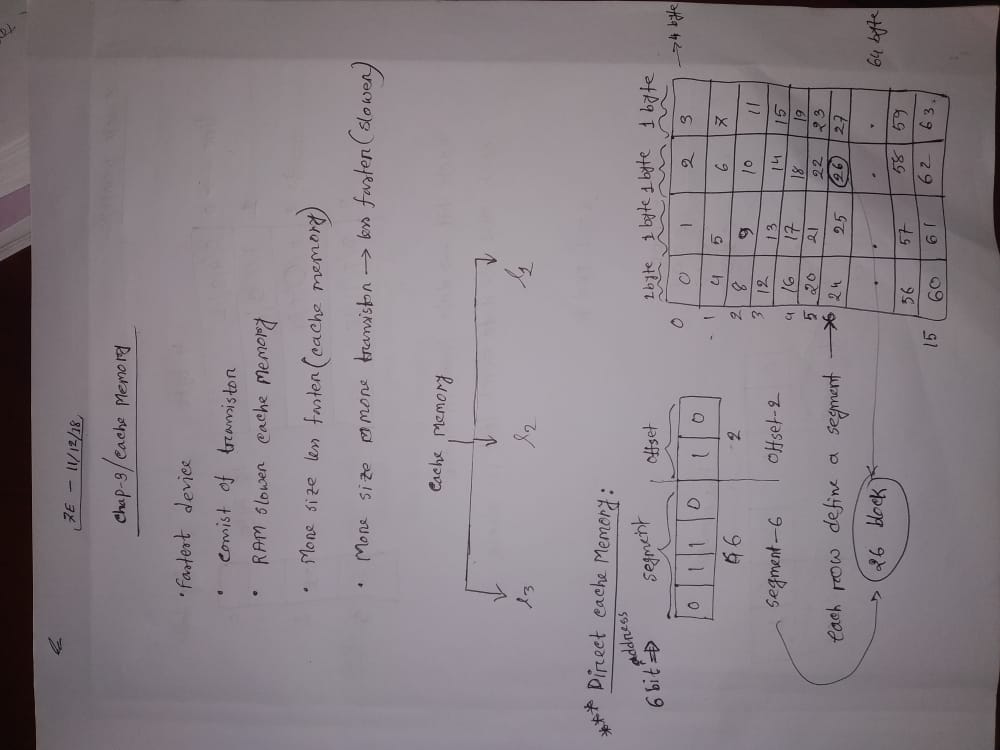 7E - 11/12/18
Chap-9/Cache Memory
• Fastest device
• consist of transistor
• RAM slower cache memory
• More size less faster (cache memory)
• More size more transistor → less faster (slower)
Cache Memory
L3 L2 L1
*** Direct cache Memory:
6 bit address ⇒ segment offset
0 1 1 0 1 0
6 2
segment-6 offset-2
each row define a segment → 6
26 block
1 byte 1 byte 1 byte 1 byte
0 0 1 2 3 → 4 byte
1 4 5 6 7
2 8 9 10 11
3 12 13 14 15
4 16 17 18 19
5 20 21 22 23
6 24 25 26 27
. . . . 64 byte
56 57 58 59
15 60 61 62 63.